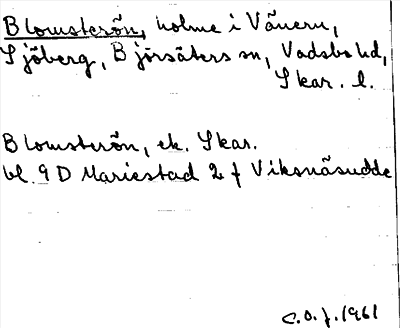 Blomsterön, holme i Vänern,
Sjöberg, Björsäters sn, Vadsbo hd,
Skar. l.
Blomsterön, ek. Skar.
bl. 9D Mariestad 2 f Viksnäsudde
C.O.J. 1961